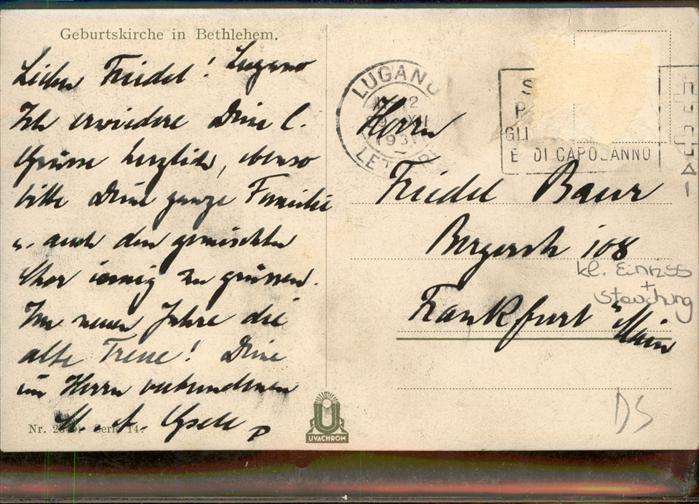 Geburtskirche in Bethlehem.
Lieber Friedel! Lugano
Ich erwiedere Deine l.
Grüsse herzlich, ebenso
bitte Deine ganze Familie
u. auch den gemischten
Chor innig zu grüssen.
Im neuen Jahre die
alte Treue! Deine
im Herrn verbundenen
Nr. Serie 14.
LUGANO
LETTERE
GLI
E DI CAPODANNO
Herrn
Friedel Baur
Bergerstr 108
kl. EinRiss
+
Stauchung
Frankfurt a/Main
DS
UVACHROM